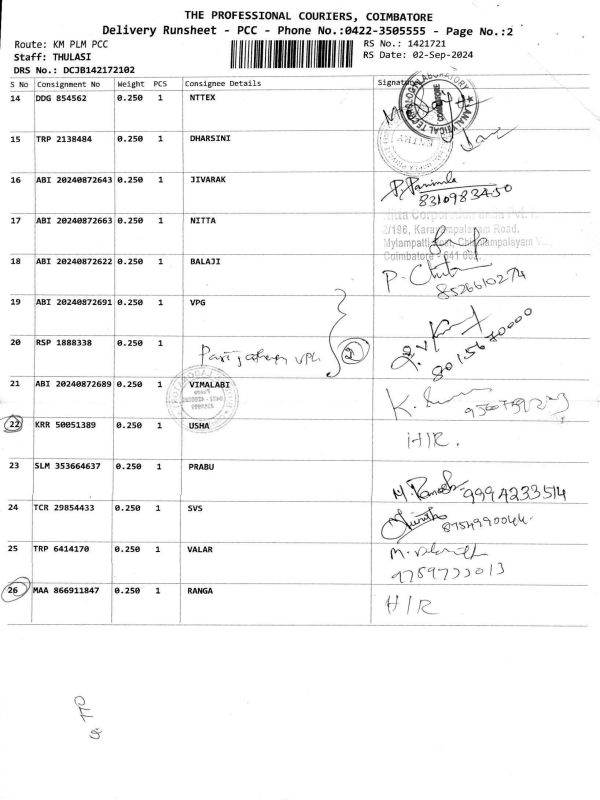 THE PROFESSIONAL COURIERS, COIMBATORE
Delivery Runsheet - PCC - Phone No.:0422-3505555 - Page No.:2
Route: KM PLM PCC
RS No.: 1421721
Staff: THULASI
RS Date: 02-Sep-2024
DRS No.: DCJB142172102
S No Consignment No Weight PCS Consignee Details Signature
14 DDG 854562 0.250 1 NTTEX
15 TRP 2138484 0.250 1 DHARSINI
ENTRY
16 ABI 20240872643 0.250 1 JIVARAK
8310983450
17 ABI 20240872663 0.250 1 NITTA
2/196, Road,
Coimbatore - 641
18 ABI 20240872622 0.250 1 BALAJI
8526610274
19 ABI 20240872691 0.250 1 VPG
20 RSP 1888338 0.250 1
VPG 2
8015670000
21 ABI 20240872689 0.250 1 VIMALABI
22 KRR 50051389 0.250 1 USHA
H/R.
23 SLM 353664637 0.250 1 PRABU
M. Ramesh 9994233514
24 TCR 29854433 0.250 1 SVS
8754990044
25 TRP 6414170 0.250 1 VALAR
9789733013
26 MAA 866911847 0.250 1 RANGA
H/R